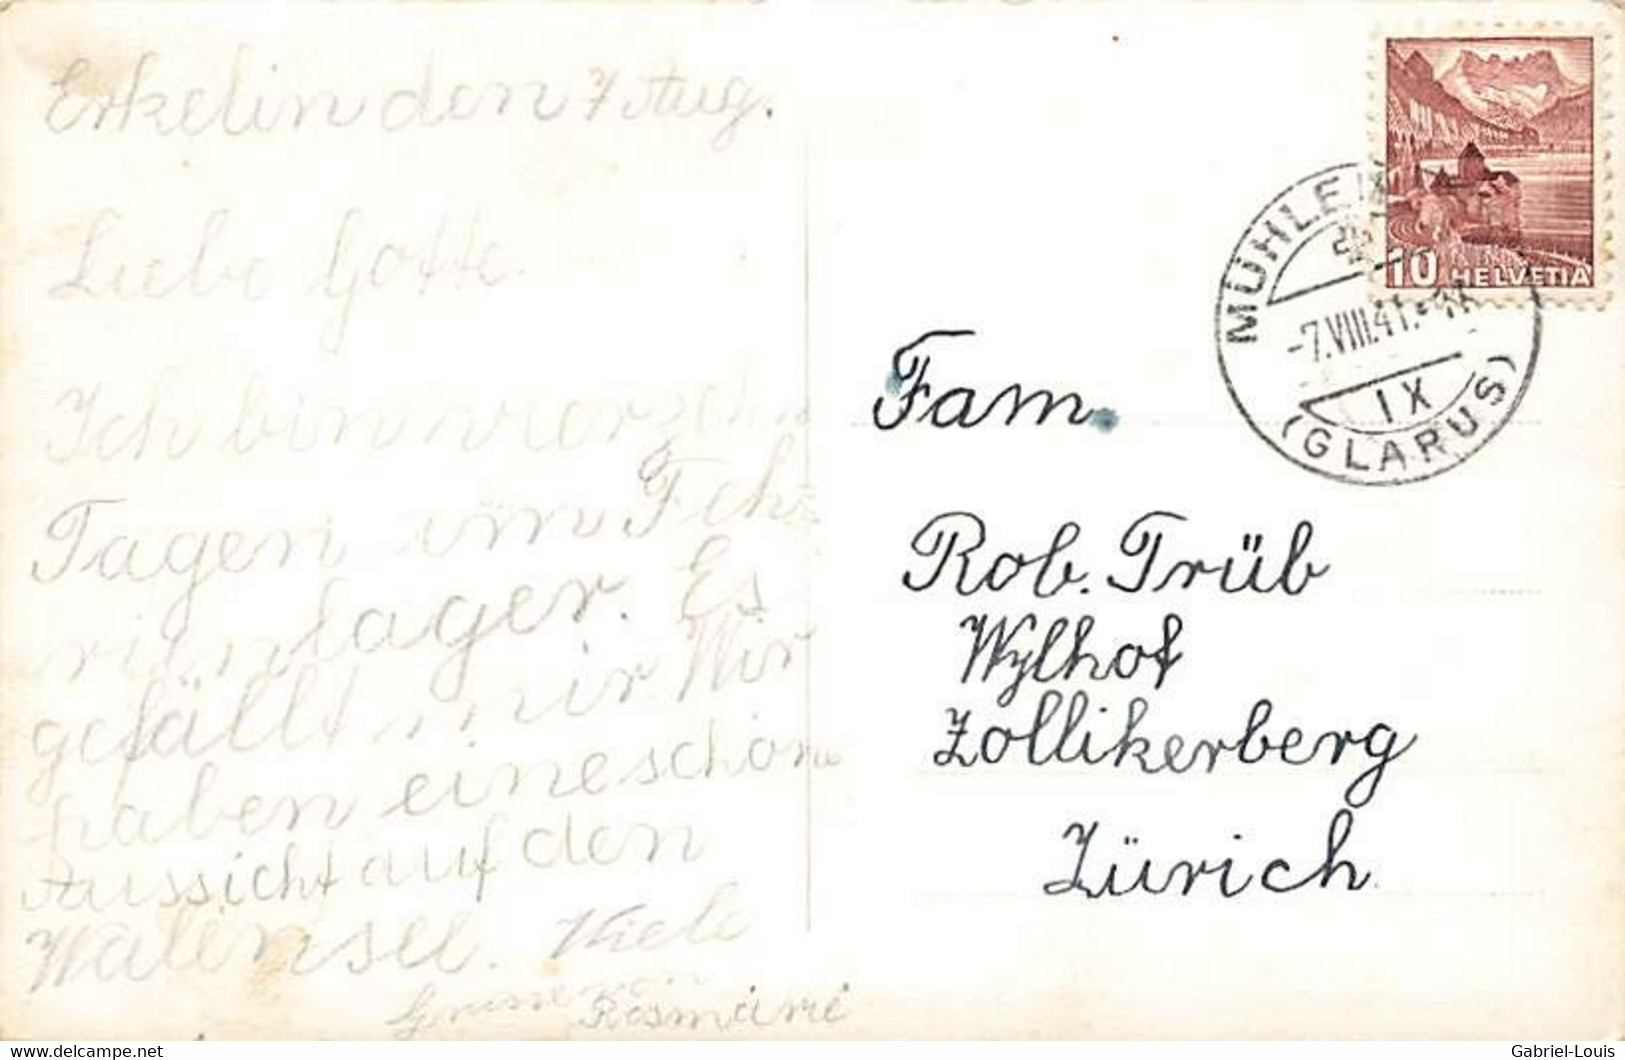 Erkelin den 7 Aug.
Liebe Gotte
Ich bin vor zehn
Tagen im Feh-
rienlager. Es
gefällt mir. Wir
haben eine schöne
Aussicht auf den
Walensee. Viele
Grüsse von
Rosmarie
10 HELVETIA
MÜHLE
-7.VIII.41.
IX
(GLARUS)
Fam.
Rob. Trüb
Wylhof
Zollikerberg
Zürich
www.delcampe.net
Gabriel-Louis